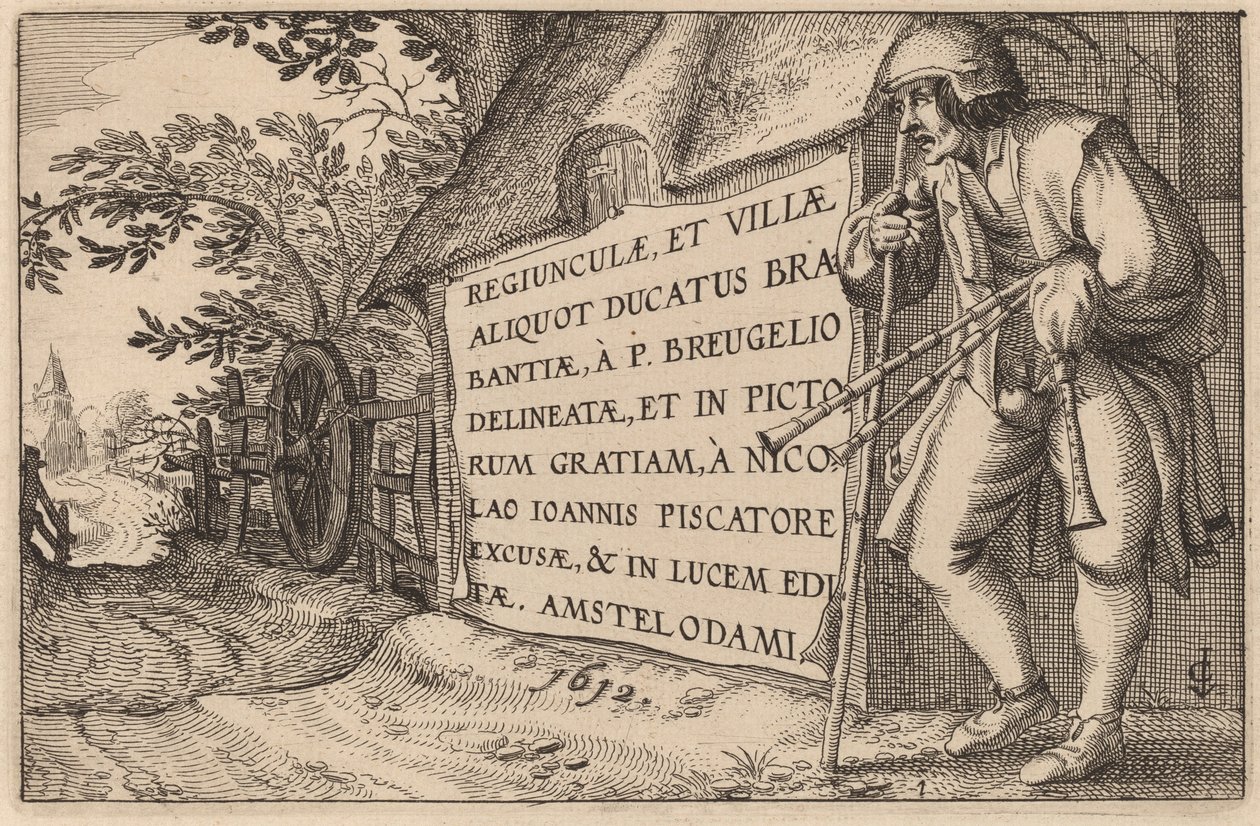 REGIUNCULÆ, ET VILLÆ
ALIQUOT DUCATUS BRA-
BANTIÆ, À P. BREUGELIO
DELINEATÆ, ET IN PICTO-
RUM GRATIAM, À NICO-
LAO IOANNIS PISCATORE
EXCUSÆ, & IN LUCEM EDI
TÆ. AMSTELODAMI.
1612.
1